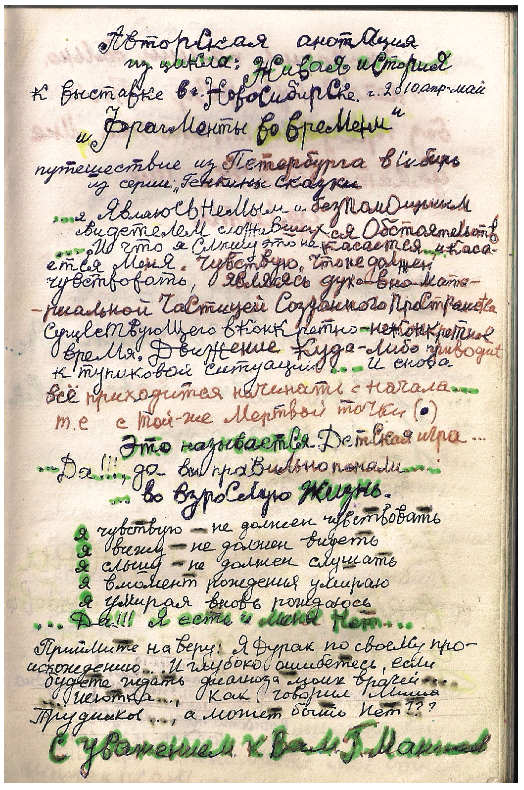 Авторская анотация
из цикла: Живая история
к выставке в г. Новосибирске. г. 2010 апр-май
"Фрагменты во времени"
путешествие из Петербурга в Сибирь
из серии "Генкины сказки
... я Являюсь немым и безпомощным
свидетелем сложившихся Обстоятельств
... И что я слышу это не касается и каса-
ется меня. Чувствую, что не должен
чувствовать, являясь духовно мате-
-риальной частицей Созданного пространства
существующего в конкретно-неконкретное
время. Движение куда-либо приводит
к тупиковой ситуации ... И снова
всё приходится начинать с начала...
т.е с той-же Мертвой точки (•)
Это называется Детская игра...
-- Да!!!, да вы правильно поняли ...
... во взрослую жизнь.
Я чувствую — не должен чувствовать
Я вижу — не должен видеть
Я слышу — не должен слушать
Я в момент рождения умираю
Я умирая вновь рождаюсь
... Да!!! Я есть и меня Нет...
Приймите на веру: Я Дурак по своему про-
исхождению... И глубоко ошибетесь, если
будете ждать диагноза моих врачей....
Как говорил Миша
Трудников ..., а может быть Нет???
С уважением к Вам. Г.